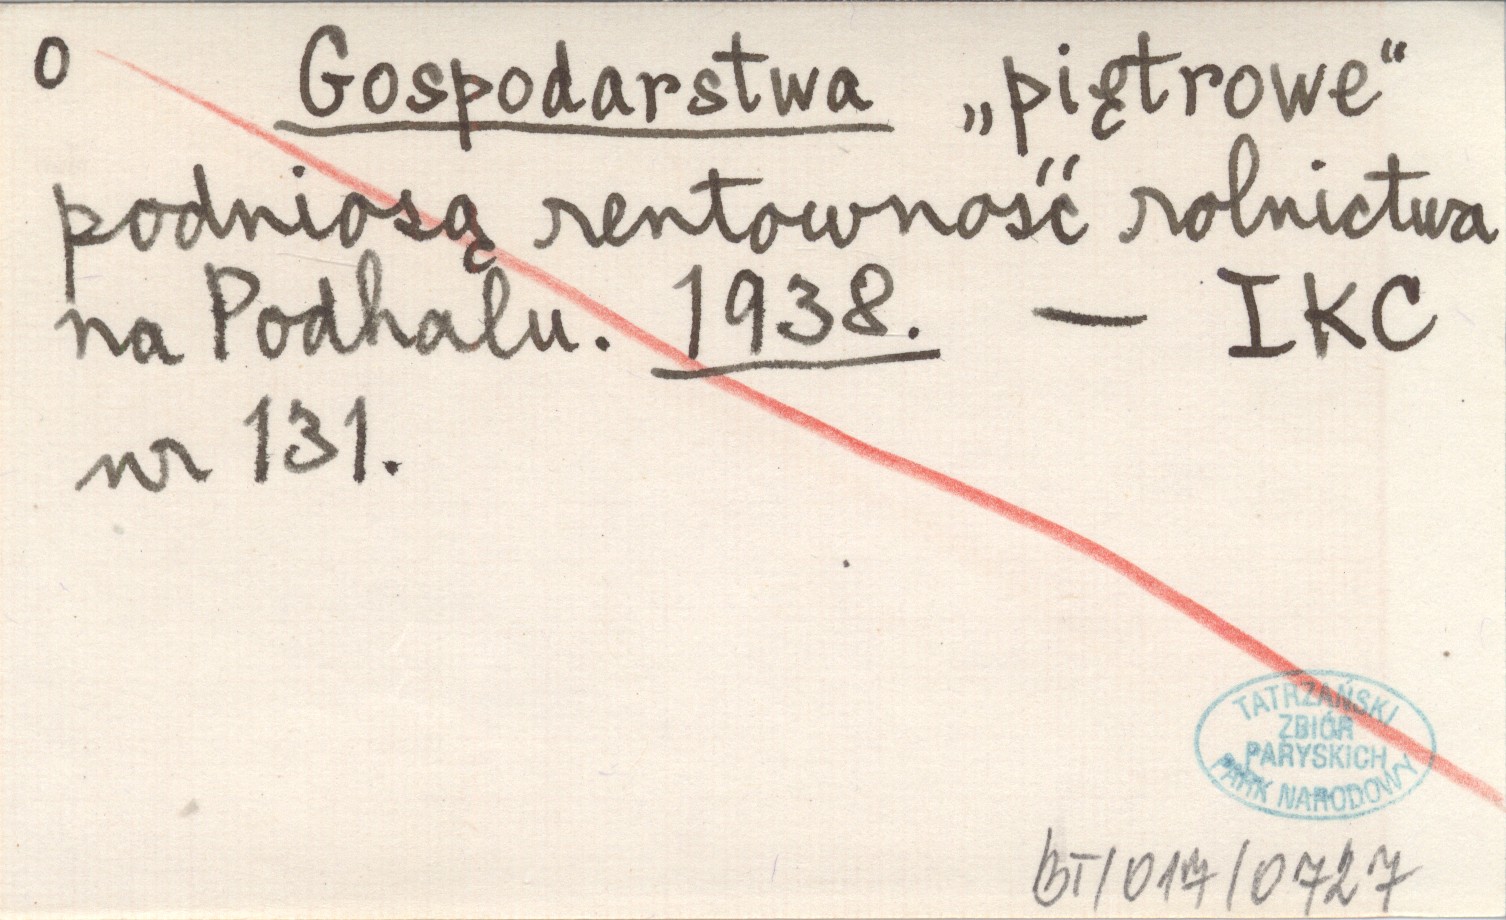 o Gospodarstwa „piętrowe“
podniosą rentowność rolnictwa
na Podhalu. 1938. — IKC
nr 131.
TATRZAŃSKI
ZBIÓR
PARYSKICH
PARK NARODOWY
bT/017/0727